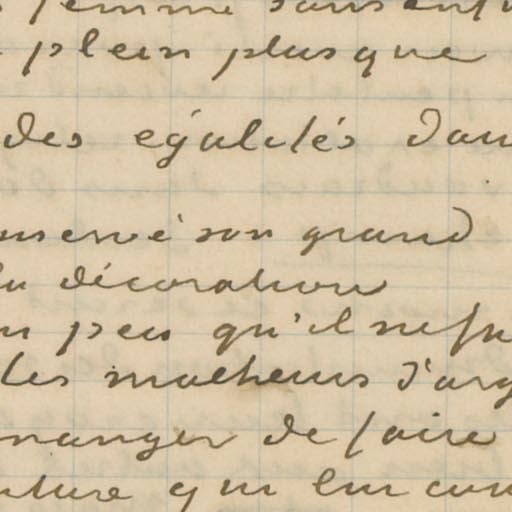 femme sans
plein plus que
des égalités dan
nservé son grand
la décoration
n peu qu'il ne fu
les malheurs d'arg
manger de faire
nture qui leur con